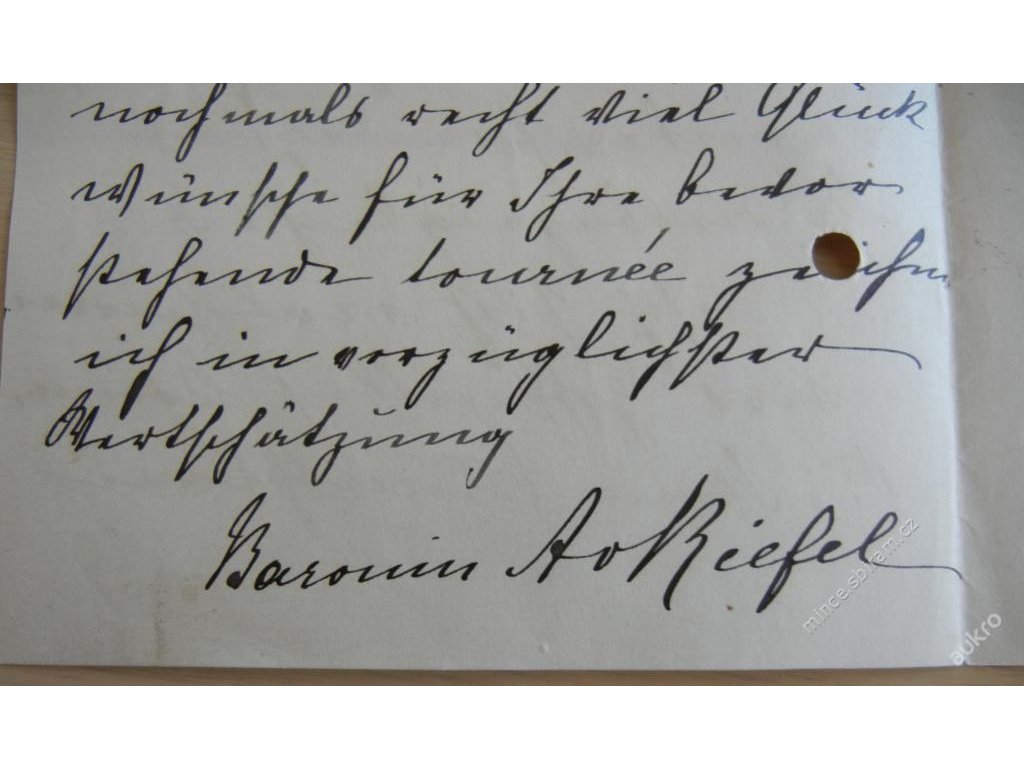 nochmals recht viel Glück
wünsche für Ihre bevor
stehende tournée zeichne
ich in vorzüglichster
Wertschätzung
Baronin A v Riefel
mince.sbiram.cz
aukro